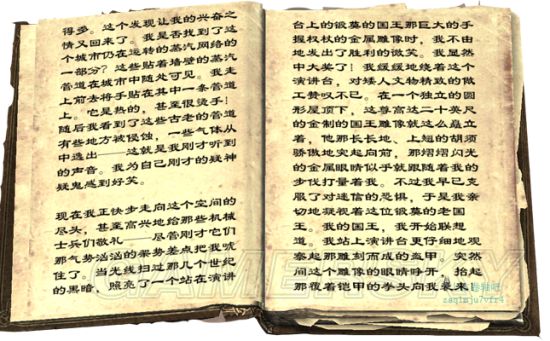 得多。这个发现让我的兴奋之
情又回来了。我是否找到了这
个城市仍在运转的蒸汽网络的
一部分？这些贴着墙壁的蒸汽
管道在城市中随处可见。我走
上前去将手贴在其中一条管道
上。它是热的，甚至很烫手！
随后我看到了这些古老的管道
有些地方被侵蚀，一些气体从
中逃出——这就是我刚才听到
的声音。我为自己刚才的疑神
疑鬼感到好笑。
现在我正快步走向这个空间的
尽头，甚至高兴地给那些机械
士兵们敬礼——尽管刚才它们
那气势汹汹的架势差点把我唬
住了。当光线扫过那几个世纪
的黑暗，照亮了一个站在演讲
台上的锻莫的国王那巨大的手
握权杖的金属雕像时，我不由
地发出了胜利的微笑。我显然
中大奖了！我缓缓地绕着这个
演讲台，对矮人文物精致的做
工赞叹不已。在一个独立的圆
形屋顶下，这尊高达二十英尺
的金制的国王雕像就这么矗立
着，他那长长地、上短的胡须
骄傲地突起向前，那熠熠闪光
的金属眼睛似乎就跟随着我的
步伐打量着我。不过我早已克
服了对迷信的恐惧，于是我亲
切地凝视着这位锻莫的老国
王。我的国王，我开始联想
道。我站上演讲台更仔细地观
察起那雕刻而成的盔甲。突然
间这个雕像的眼睛睁开，抬起
那覆着铠甲的拳头向我袭来。
GAMERSKY
zaqimju7vfr4